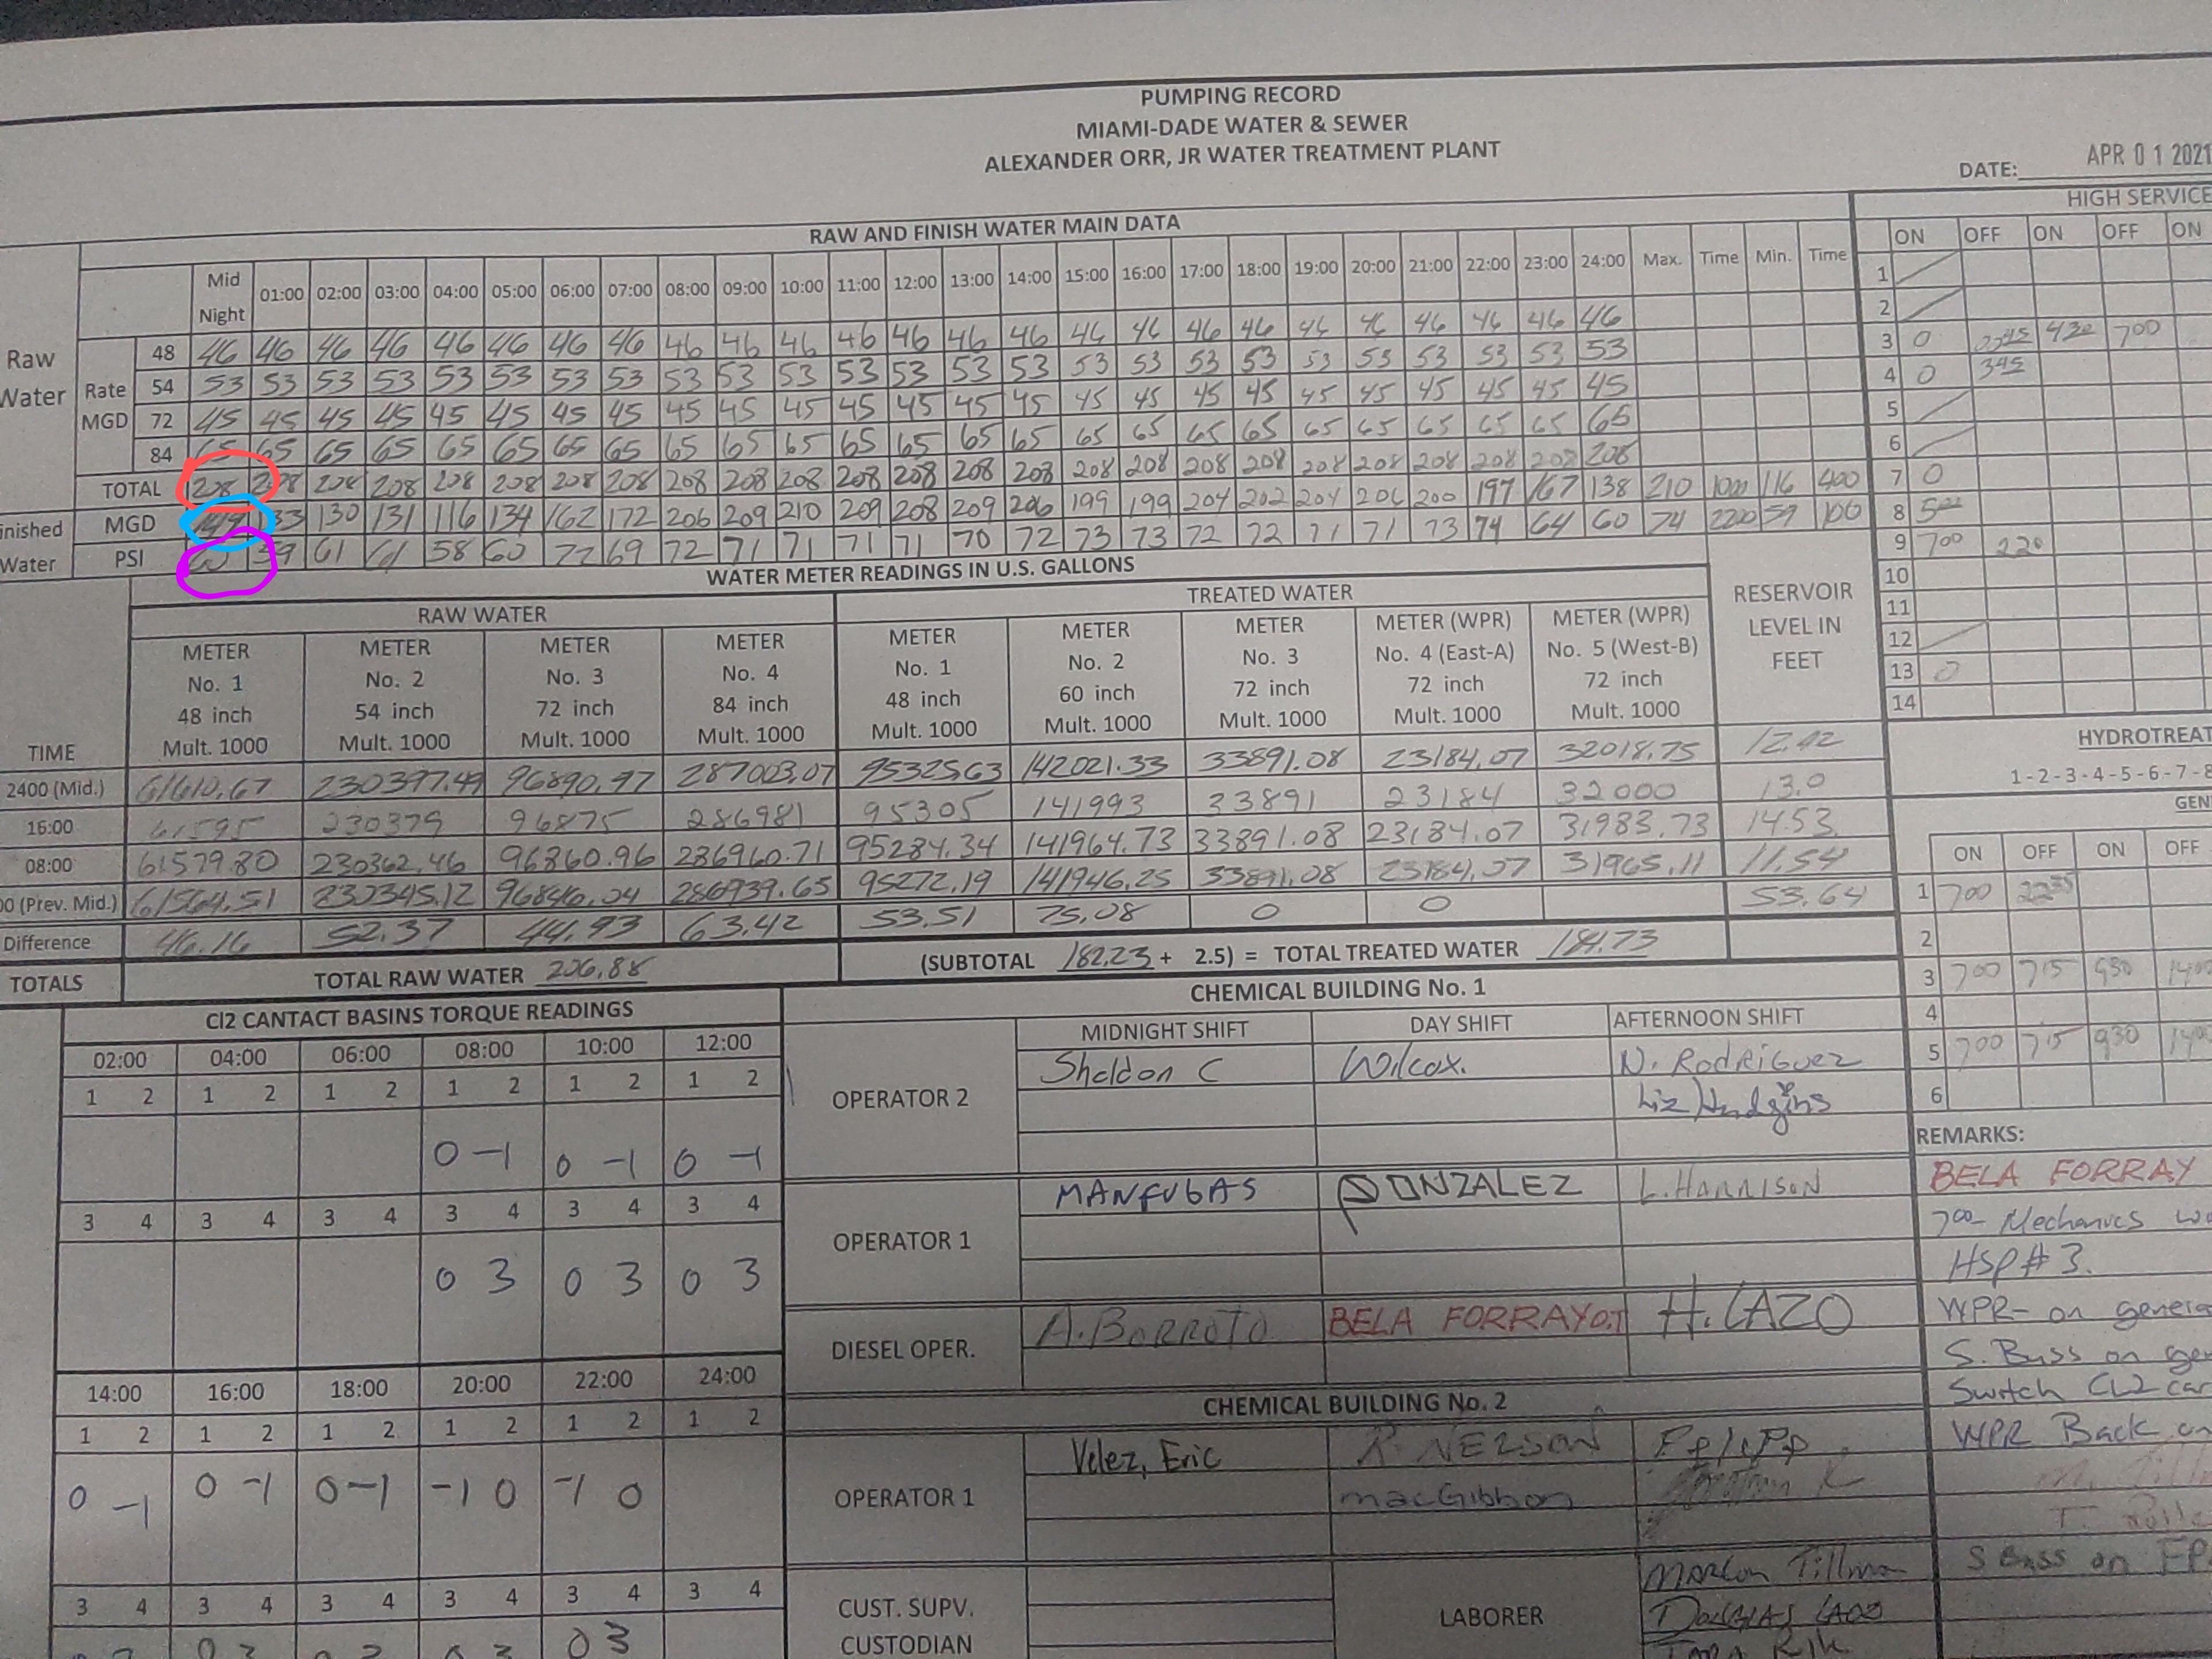 PUMPING RECORD
MIAMI-DADE WATER & SEWER
ALEXANDER ORR, JR WATER TREATMENT PLANT
DATE: APR 01 2021
RAW AND FINISH WATER MAIN DATA
Mid Night 01:00 02:00 03:00 04:00 05:00 06:00 07:00 08:00 09:00 10:00 11:00 12:00 13:00 14:00 15:00 16:00 17:00 18:00 19:00 20:00 21:00 22:00 23:00 24:00 Max. Time Min. Time
Raw Water Rate MGD
48 46 46 46 46 46 46 46 46 46 46 46 46 46 46 46 46 46 46 46 46 46 46 46 46 46
54 53 53 53 53 53 53 53 53 53 53 53 53 53 53 53 53 53 53 53 53 53 53 53 53 53
72 45 45 45 45 45 45 45 45 45 45 45 45 45 45 45 45 45 45 45 45 45 45 45 45 45
84 65 65 65 65 65 65 65 65 65 65 65 65 65 65 65 65 65 65 65 65 65 65 65 65 65
TOTAL 208 208 208 208 208 208 208 208 208 208 208 208 208 208 208 208 208 208 208 208 208 208 208 208 208
inished Water
MGD 149 133 130 131 116 134 162 172 206 209 210 209 208 209 206 199 199 204 202 204 206 200 197 167 138 210 1000 116 400
PSI 60 59 61 61 58 60 72 69 72 71 71 71 71 70 72 73 73 72 72 71 71 73 74 64 60 74 2200 59 100
WATER METER READINGS IN U.S. GALLONS
RAW WATER TREATED WATER
TIME
METER No. 1 48 inch Mult. 1000
METER No. 2 54 inch Mult. 1000
METER No. 3 72 inch Mult. 1000
METER No. 4 84 inch Mult. 1000
METER No. 1 48 inch Mult. 1000
METER No. 2 60 inch Mult. 1000
METER No. 3 72 inch Mult. 1000
METER (WPR) No. 4 (East-A) 72 inch Mult. 1000
METER (WPR) No. 5 (West-B) 72 inch Mult. 1000
RESERVOIR LEVEL IN FEET
2400 (Mid.) 61610.67 230397.49 96890.97 287003.07 95325.63 142021.33 33891.08 23184.07 32018.75 12.42
16:00 61595 230379 96875 286981 95305 141993 33891 23184 32000 13.0
08:00 61579.80 230362.46 96860.96 286960.71 95284.34 141964.73 33891.08 23184.07 31983.73 14.53
00 (Prev. Mid.) 61564.51 230345.12 96846.04 286939.65 95272.19 141946.25 33891.08 23184.07 31965.11 11.54
Difference 46.16 52.37 44.93 63.42 53.51 75.08 0 0 53.64
TOTALS TOTAL RAW WATER 206.88 (SUBTOTAL 182.23 + 2.5) = TOTAL TREATED WATER 184.73
HIGH SERVICE
ON OFF ON OFF ON
1
2
3 0 2245 430 700
4 0 345
5
6
7 0
8 500
9 700 220
10
11
12
13 0
14
HYDROTREAT
1-2-3-4-5-6-7-8
GEN
ON OFF ON OFF
1 700 2235
2
3 700 715 930 1400
4
5 700 715 930
6
Cl2 CANTACT BASINS TORQUE READINGS
02:00 04:00 06:00 08:00 10:00 12:00
1 2 1 2 1 2 1 2 1 2 1 2
0 -1 0 -1 0 -1
3 4 3 4 3 4 3 4 3 4 3 4
0 3 0 3 0 3
14:00 16:00 18:00 20:00 22:00 24:00
1 2 1 2 1 2 1 2 1 2 1 2
0 -1 0 -1 0 -1 -1 0 -1 0
3 4 3 4 3 4 3 4 3 4 3 4
0 3 0 3 0 3
CHEMICAL BUILDING No. 1
MIDNIGHT SHIFT DAY SHIFT AFTERNOON SHIFT
OPERATOR 2 Sheldon C Wilcox. N. RODRIGUEZ
Liz Hudgins
OPERATOR 1 MANFUGAS GONZALEZ L. HARRISON
DIESEL OPER. A. BORROTO BELA FORRAY O.T H. LAZO
CHEMICAL BUILDING No. 2
OPERATOR 1 Velez, Eric R. NELSON
macGibbon
CUST. SUPV.
CUSTODIAN
LABORER
Marlon Tillman
DOUGLAS LAZO
REMARKS:
BELA FORRAY
700- Mechanics
HSP# 3.
WPR- on genera
S. Buss on gen
Switch CL2 car
WPR Back on
S Buss on FP